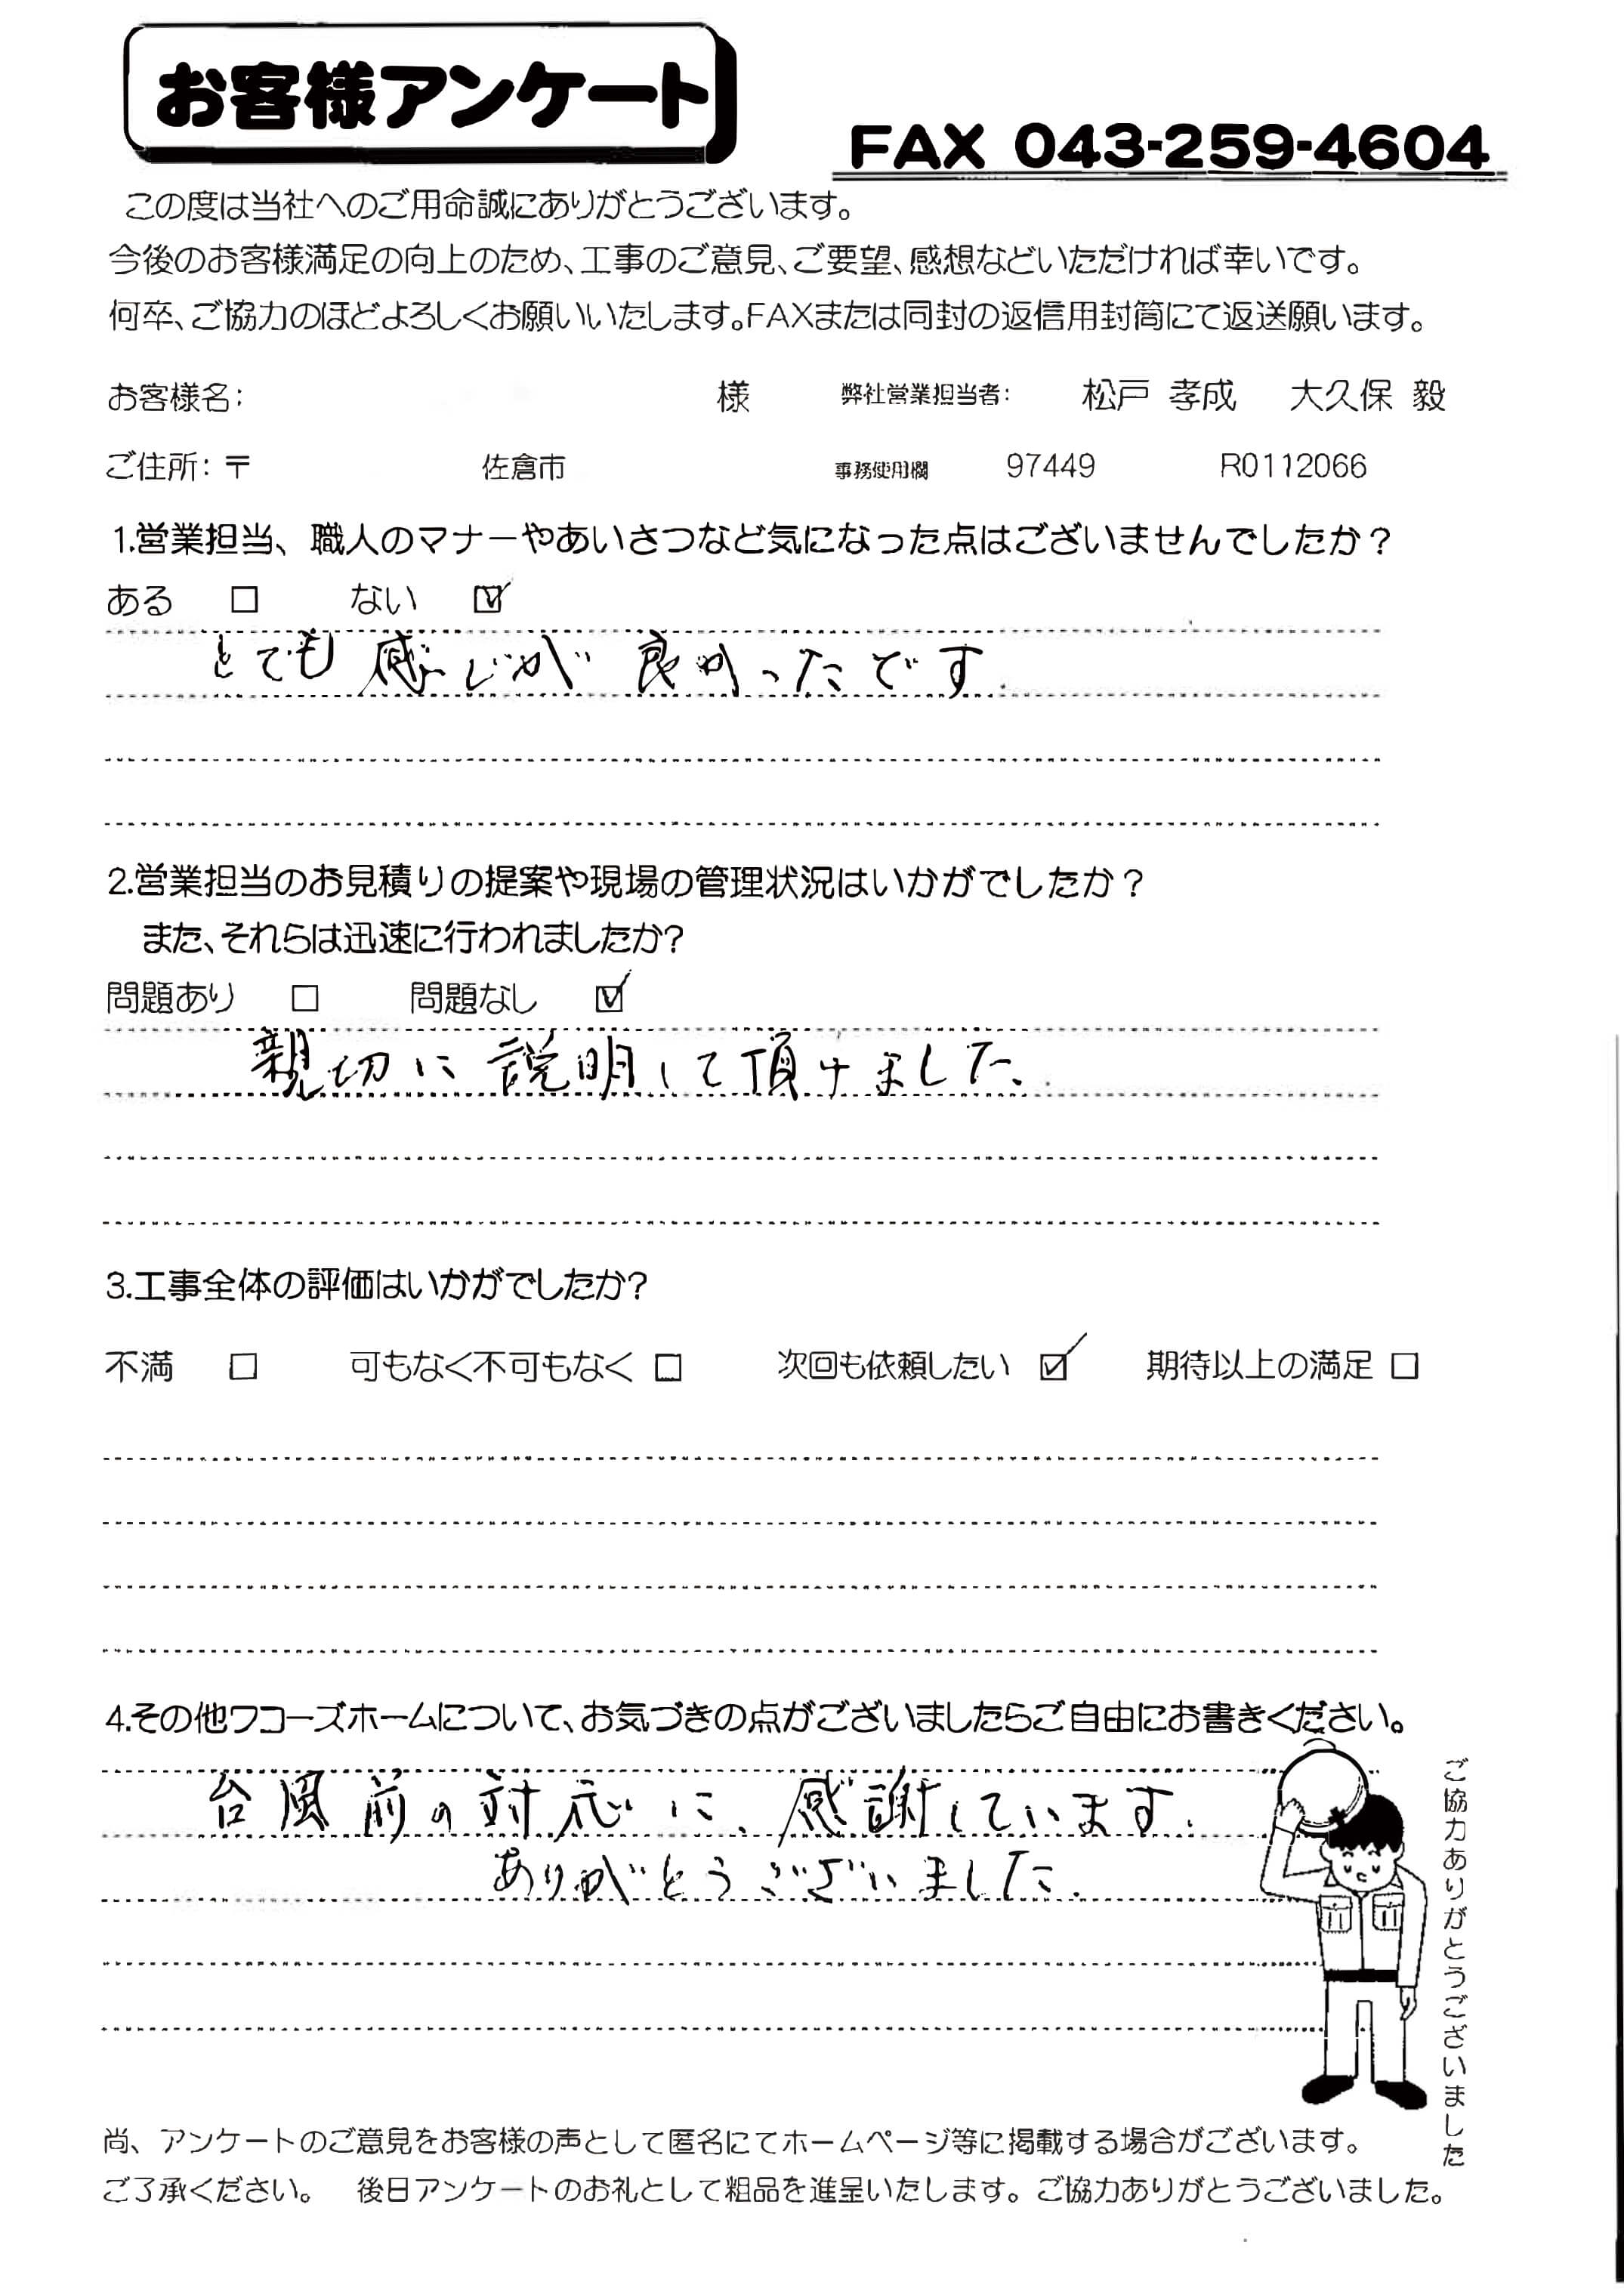 お客様アンケート
FAX 043-259-4604
この度は当社へのご用命誠にありがとうございます。
今後のお客様満足の向上のため、工事のご意見、ご要望、感想などいただければ幸いです。
何卒、ご協力のほどよろしくお願いいたします。FAXまたは同封の返信用封筒にて返送願います。
お客様名: 様 弊社営業担当者: 松戸 孝成 大久保 毅
ご住所: 〒 佐倉市 事務使用欄 97449 R0112066
1.営業担当、職人のマナーやあいさつなど気になった点はございませんでしたか？
ある □ ない ☑
とても感じが良かったです.
2.営業担当のお見積りの提案や現場の管理状況はいかがでしたか？
また、それらは迅速に行われましたか?
問題あり □ 問題なし ☑
親切に説明して頂けました.
3.工事全体の評価はいかがでしたか?
不満 □ 可もなく不可もなく □ 次回も依頼したい ☑ 期待以上の満足 □
4.その他ワコーズホームについて、お気づきの点がございましたらご自由にお書きください。
台風前の対応に、感謝しています.
ありがとうございました.
ご協力ありがとうございました
尚、アンケートのご意見をお客様の声として匿名にてホームページ等に掲載する場合がございます。
ご了承ください。 後日アンケートのお礼として粗品を進呈いたします。ご協力ありがとうございました。